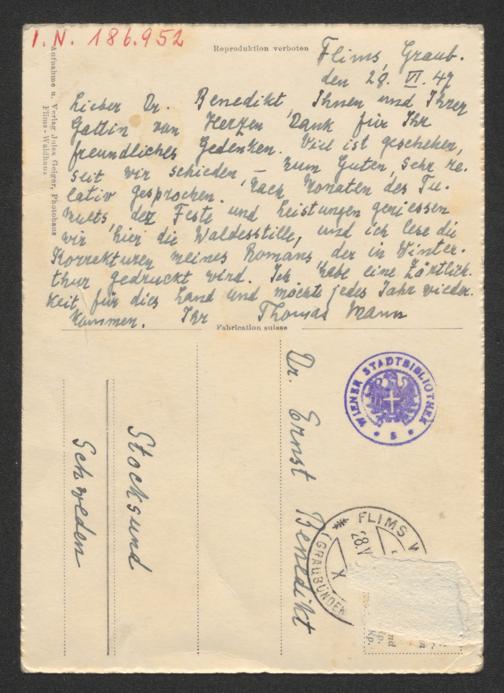 I. N. 186.952
Reproduktion verboten
Flims, Graub.
den 28. VI. 47
Lieber Dr. Benedikt, Ihnen und Ihrer
Gattin von Herzen Dank für Ihr
freundliches Gedenken. Viel ist geschehen,
seit wir schieden – zum Guten, sehr re-
lativ gesprochen. Nach Monaten des Tu-
mults, der Feste und Leistungen geniessen
wir hier die Waldesstille, und ich lese die
Korrekturen meines Romans, der in Winter-
thur gedruckt wird. Ich habe eine Zärtlich-
keit für dies Land und möchte jedes Jahr wieder-
kommen. Ihr Thomas Mann
Aufnahme u. Verlag Jules Geiger, Photohaus
Flims-Waldhaus
Fabrication suisse
Dr. Ernst Benedikt
Stocksund
Schweden
WIENER STADTBIBLIOTHEK
* S *
FLIMS W
28.V
X
(GRAUBÜNDEN)